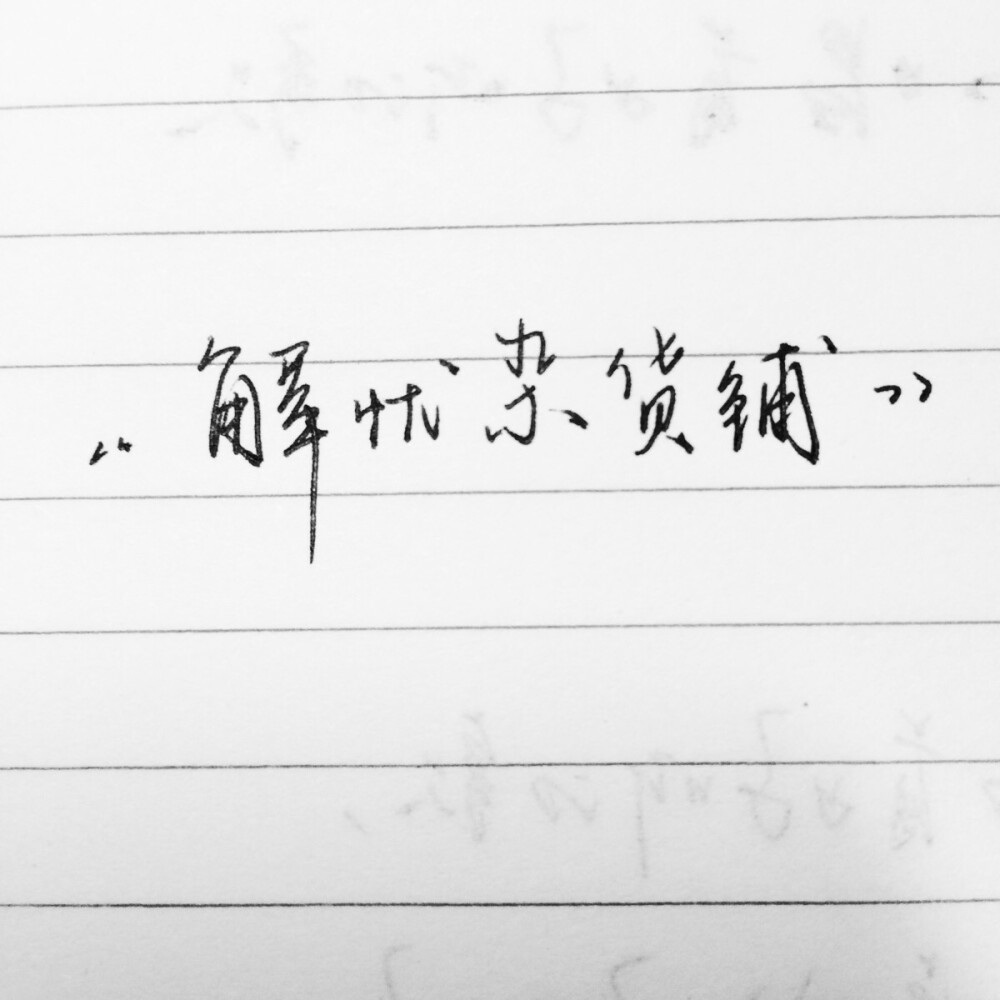 “解忧杂货铺”